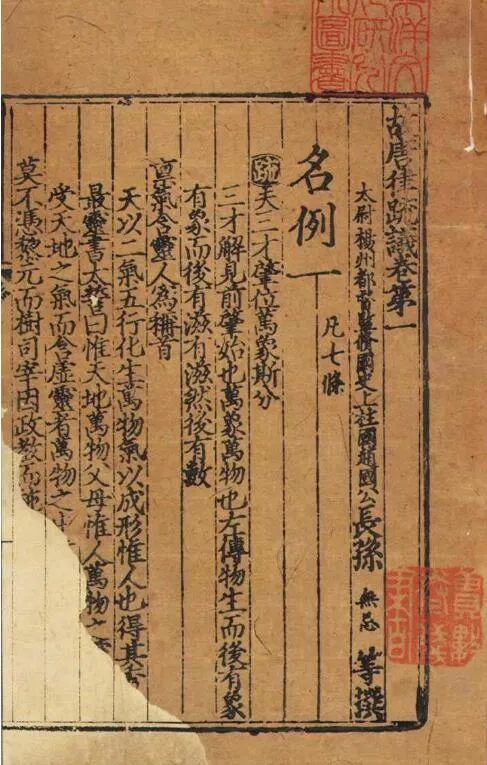 故唐律疏議卷第一
太尉楊州都督監脩國史上柱國趙國公長孫 無忌 等撰
名例一 凡七條
疏夫三才肇位萬象斯分
三才解見前肇始也萬象萬物也左傳物生而後有象
有象而後有滋有滋然後有數
禀氣含靈人爲稱首
天以二氣五行化生萬物氣以成形惟人也得其
最靈書太誓曰惟天地萬物父母惟人萬物之
受天地之氣而含虛靈者萬物之
莫不憑黎元而樹司宰因政教而